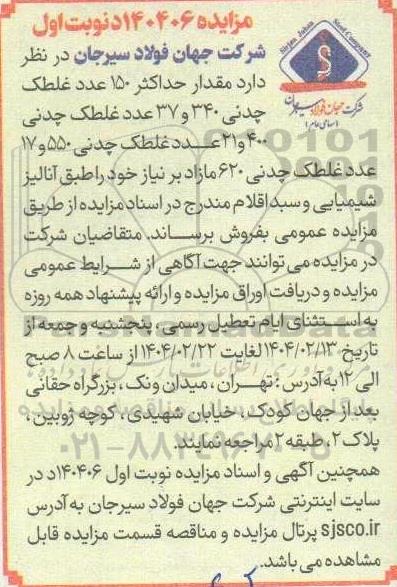 مزایده ۱۴۰۴۰۶د نوبت اول
Sirjan Jahan Steel Company
شرکت جهان فولاد سیرجان
(سهامی عام)
شرکت جهان فولاد سیرجان در نظر
دارد مقدار حداکثر ۱۵۰ عدد غلطک
چدنی ۳۴۰ و ۳۷ عدد غلطک چدنی
۴۰۰ و ۲۱ عدد غلطک چدنی ۵۵۰ و ۱۷
عدد غلطک چدنی ۶۲۰ مازاد بر نیاز خود را طبق آنالیز
شیمیایی و سبد اقلام مندرج در اسناد مزایده از طریق
مزایده عمومی بفروش برساند. متقاضیان شرکت
در مزایده می توانند جهت آگاهی از شرایط عمومی
مزایده و دریافت اوراق مزایده و ارائه پیشنهاد همه روزه
به استثنای ایام تعطیل رسمی، پنجشنبه و جمعه از
تاریخ ۱۴۰۴/۰۲/۱۳ لغایت ۱۴۰۴/۰۲/۲۲ از ساعت ۸ صبح
الی ۱۲ به آدرس : تهران ، میدان ونک ، بزرگراه حقانی
بعد از جهان کودک، خیابان شهیدی، کوچه ژوبین ،
پلاک ۲، طبقه ۲ مراجعه نمایند.
همچنین آگهی و اسناد مزایده نوبت اول ۱۴۰۴۰۶د در
سایت اینترنتی شرکت جهان فولاد سیرجان به آدرس
sjsco.ir پرتال مزایده و مناقصه قسمت مزایده قابل
مشاهده می باشد.